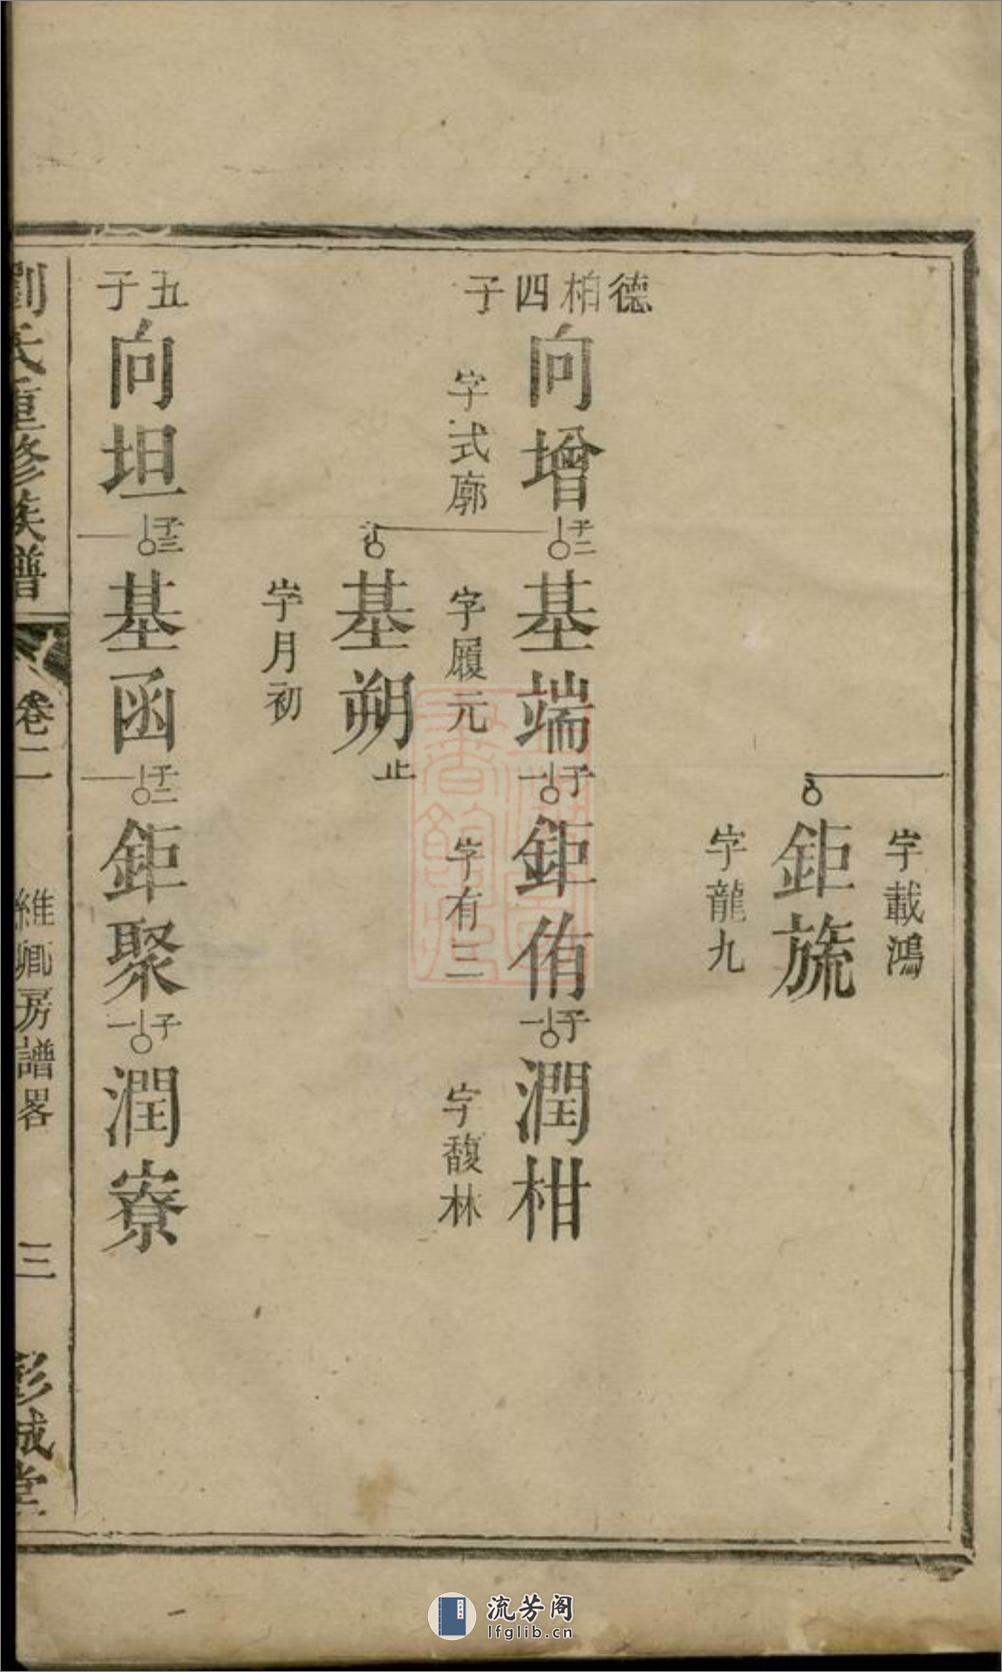 字載鴻
鉅旒
字龍九
德柏四子
向增
子二
基端
子一
鉅侑
子一
潤柑
字式廓
字履元
字有三
字馥林
基朔
止
字月初
五子
向坦
子三
基函
子二
鉅聚
子一
潤寮
劉氏重修族譜
卷二
維瓛房譜畧
三
彭城堂
流芳阁
lfglib.cn